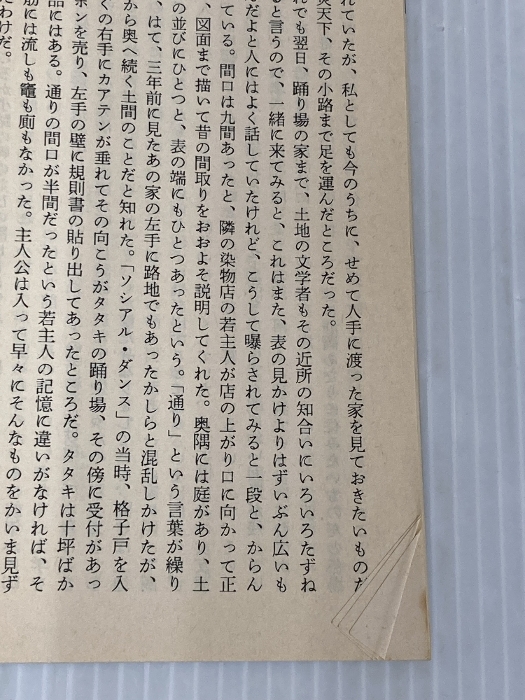 れていたが、私としても今のうちに、せめて人手に渡った家を見ておきたいものだ
炎天下、その小路まで足を運んだところだった。
れでも翌日、踊り場の家まで、土地の文学者もその近所の知合いにいろいろたずね
ると言うので、一緒に来てみると、これはまた、表の見かけよりはずいぶん広いも
だよと人にはよく話していたけれど、こうして曝らされてみると一段と、からん
ている。間口は九間あったと、隣の染物店の若主人が店の上がり口に向かって正
、図面まで描いて昔の間取りをおおよそ説明してくれた。奥隅には庭があり、土
の並びにひとつと、表の端にもひとつあったという。「通り」という言葉が繰り
、はて、三年前に見たあの家の左手に路地でもあったかしらと混乱しかけたが、
から奥へ続く土間のことだと知れた。「ソシアル・ダンス」の当時、格子戸を入
くの右手にカアテンが垂れてその向こうがタタキの踊り場、その傍に受付があっ
ポンを売り、左手の壁に規則書の貼り出してあったところだ。タタキは十坪ばか
品にはある。通りの間口が半間だったという若主人の記憶に違いがなければ、そ
筋には流しも竈も厠もなかった。主人公は入って早々にそんなものをかいま見ず
たわけだ。